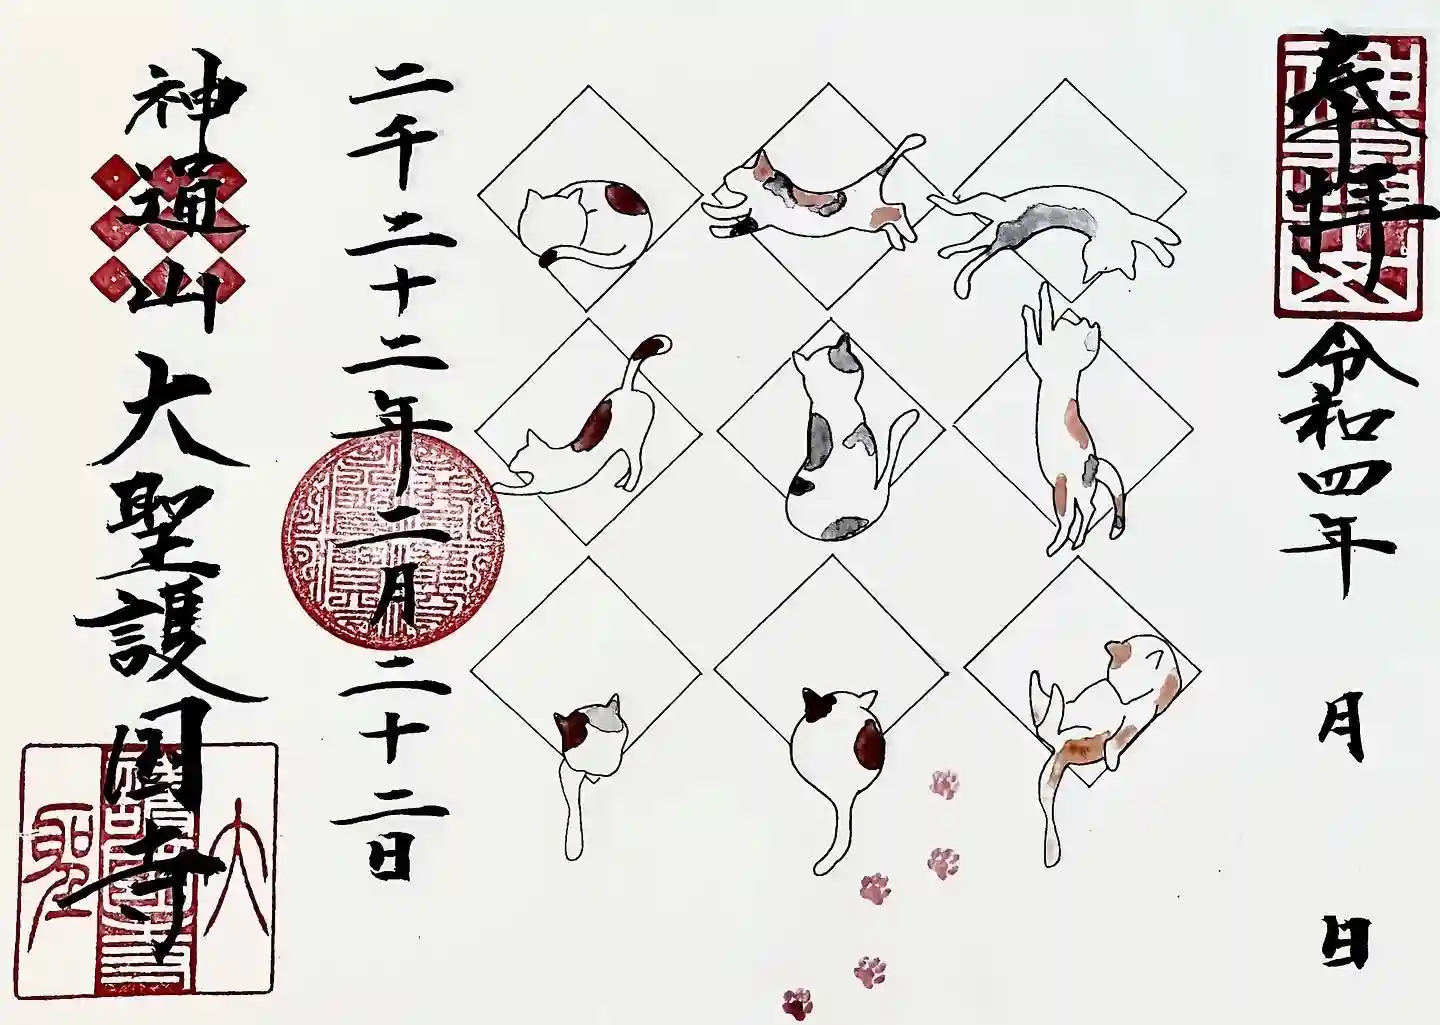 奉拝
令和四年　月　日
二千二十二年二月二十二日
神道山
大聖護国寺
大聖